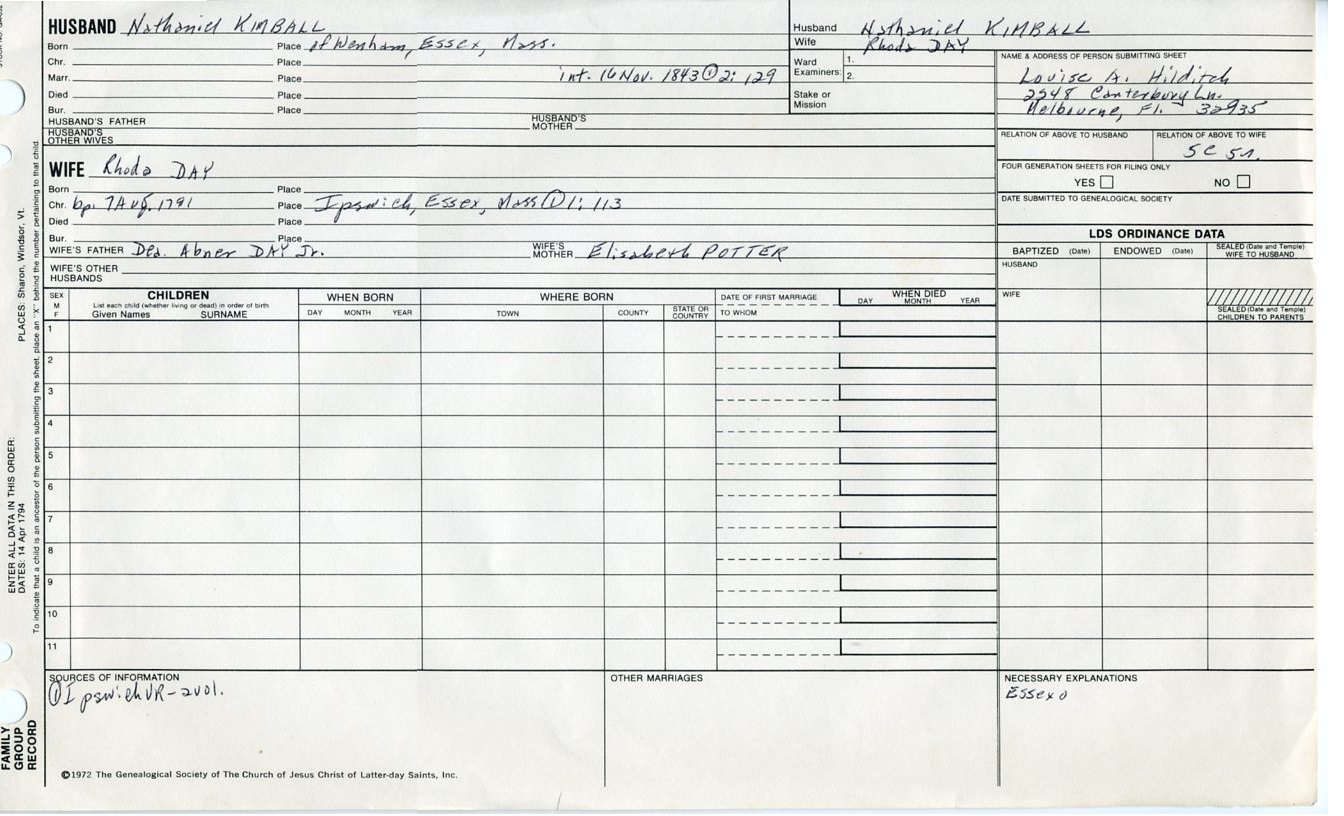 HUSBAND Nathaniel KIMBALL
Born Place of Wenham, Essex, Mass.
Chr. Place
Marr. Place int. 16 Nov. 1843 ① 2: 129
Died Place
Bur. Place
HUSBAND'S FATHER HUSBAND'S MOTHER
HUSBAND'S OTHER WIVES
Husband Nathaniel KIMBALL
Wife Rhoda DAY
Ward Examiners: 1.
2.
Stake or Mission
NAME & ADDRESS OF PERSON SUBMITTING SHEET
Louise A. Hilditch
2948 Canterbury Ln.
Melbourne, Fl. 32935
RELATION OF ABOVE TO HUSBAND RELATION OF ABOVE TO WIFE
FOUR GENERATION SHEETS FOR FILING ONLY
YES NO
DATE SUBMITTED TO GENEALOGICAL SOCIETY
WIFE Rhoda DAY
Born Place
Chr. bp. 7 Aug. 1791 Place Ipswich, Essex, Mass ① 1: 113
Died Place
Bur. Place
WIFE'S FATHER Dea. Abner DAY Jr. WIFE'S MOTHER Elisabeth POTTER
WIFE'S OTHER HUSBANDS
LDS ORDINANCE DATA
BAPTIZED (Date) ENDOWED (Date) SEALED (Date and Temple) WIFE TO HUSBAND
HUSBAND
WIFE
SEALED (Date and Temple) CHILDREN TO PARENTS
SEX M F
CHILDREN
List each child (whether living or dead) in order of birth
Given Names SURNAME
WHEN BORN
DAY MONTH YEAR
WHERE BORN
TOWN COUNTY STATE OR COUNTRY
DATE OF FIRST MARRIAGE
TO WHOM
WHEN DIED
DAY MONTH YEAR
1
2
3
4
5
6
7
8
9
10
11
SOURCES OF INFORMATION
① Ipswich VR - 2 vol.
OTHER MARRIAGES
NECESSARY EXPLANATIONS
©1972 The Genealogical Society of The Church of Jesus Christ of Latter-day Saints, Inc.
FAMILY GROUP RECORD
ENTER ALL DATA IN THIS ORDER:
DATES: 14 Apr 1794
PLACES: Sharon, Windsor, Vt.
To indicate that a child is an ancestor of the person submitting the sheet, place an "X" behind the number pertaining to that child.